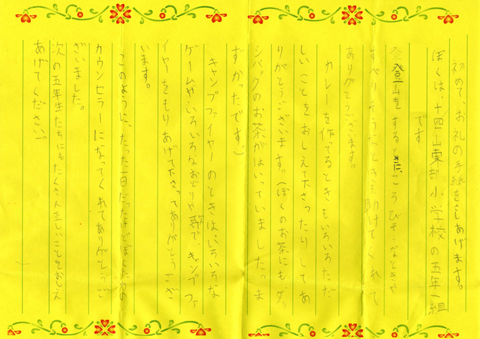 初めて、お礼の手紙をさしあげます。
ぼくは、十四山東部小学校の五年一組
です。
登山をするときに、ころびそうなときや
そうなときも助けてくれて、
ありがとうございます。
カレーを作るときも、いろいろた
しいことをおしえて下さったりしてあ
りがとうございます。(ぼくのお茶にもグ、
のお茶がはいっていました。ま
ずかったです。)
キャンプファイヤーのときは、いろいろな
ゲームやいろいろなおどりや歌で、キャンプファ
イヤーをもりあげて下さってありがとうござ
います。
このように、たった一日だったけど、ぼくたちの
カウンセラーになってくれてありがとうご
ざいました。
次の五年生たちにもたくさん正しいことをおしえ
てあげてください。